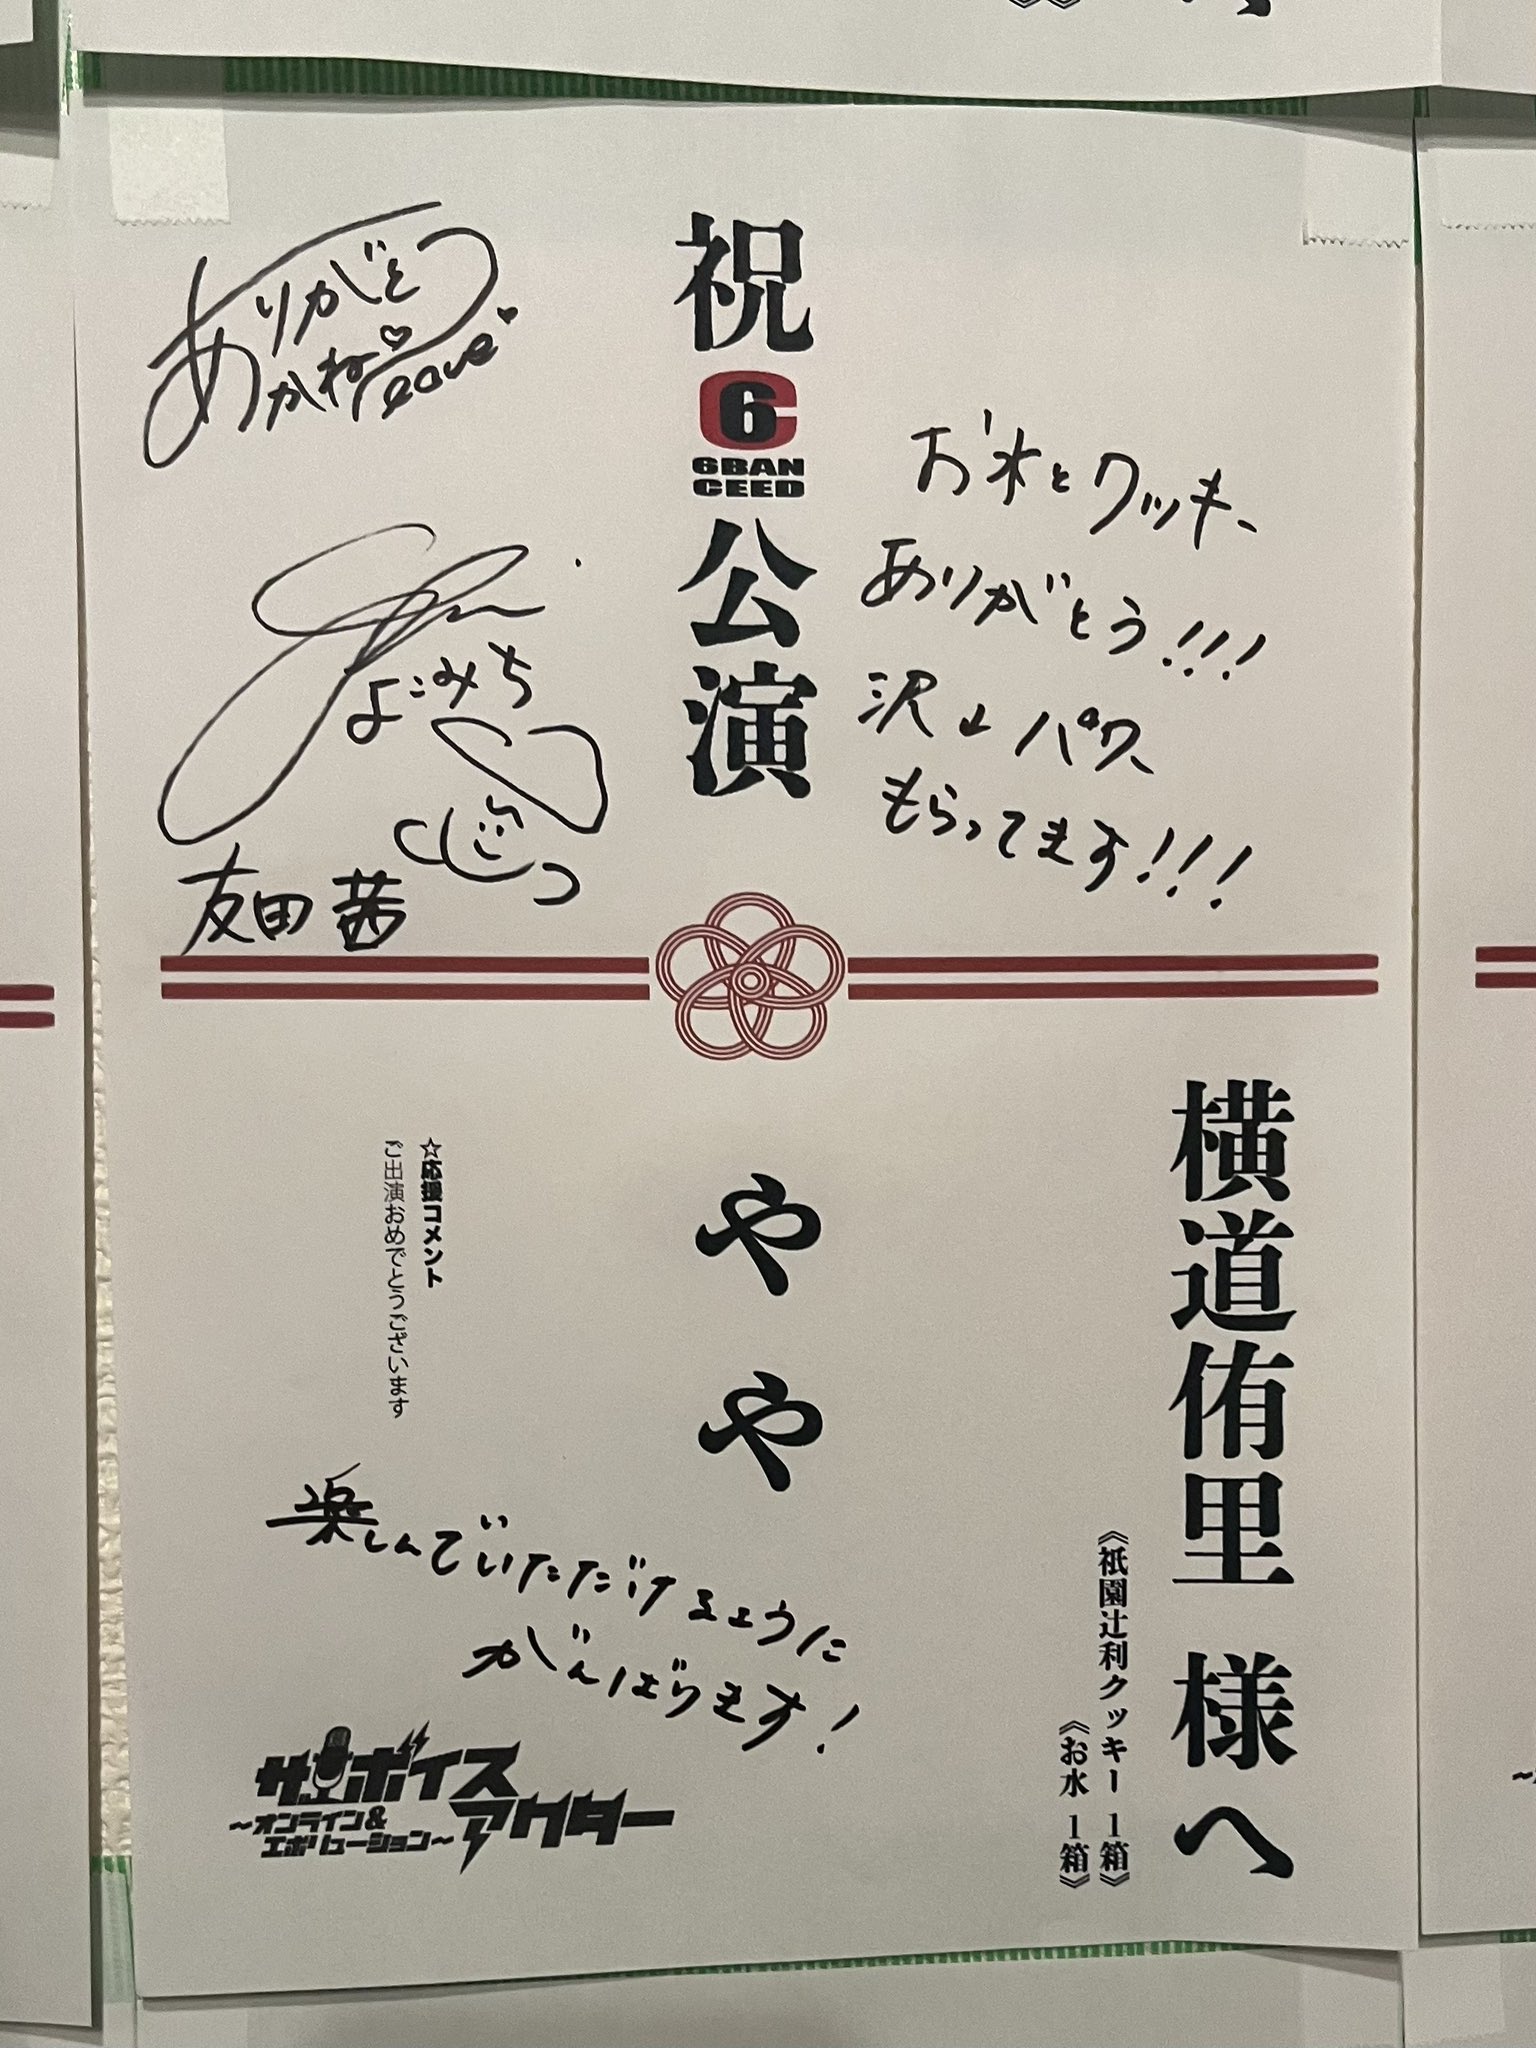 祝
6
6BAN
CEED
公演
お水とクッキー
ありがとう!!!
沢山パワー
もらってます!!!
ありがとう
あかね
peace
よこみち
友田茜
横道侑里 様へ
《祇園辻利クッキー 1箱》
《お水 1箱》
やや
☆応援コメント
ご出演おめでとうございます
楽しんでいただけるように
がんばります!
ザ・ボイス
アクター
～オンライン&
エボリューション～